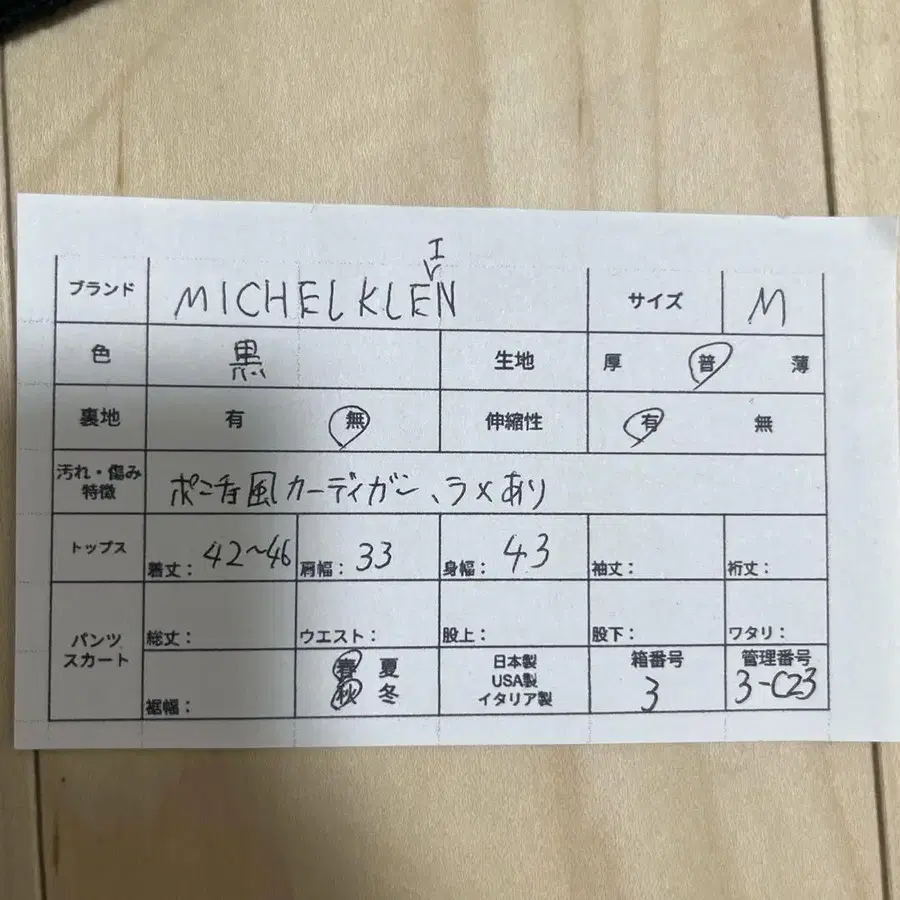 ブランド MICHEL KLEIN サイズ M
色 黒 生地 厚 普 薄
裏地 有 無 伸縮性 有 無
汚れ・傷み
特徴 ポンチョ風カーディガン、ラメあり
トップス 着丈: 42~46 肩幅: 33 身幅: 43 袖丈: 裄丈:
パンツ
スカート
総丈: ウエスト: 股上: 股下: ワタリ:
裾幅:
春 夏
秋 冬
日本製
USA製
イタリア製
箱番号
3
管理番号
3-C23